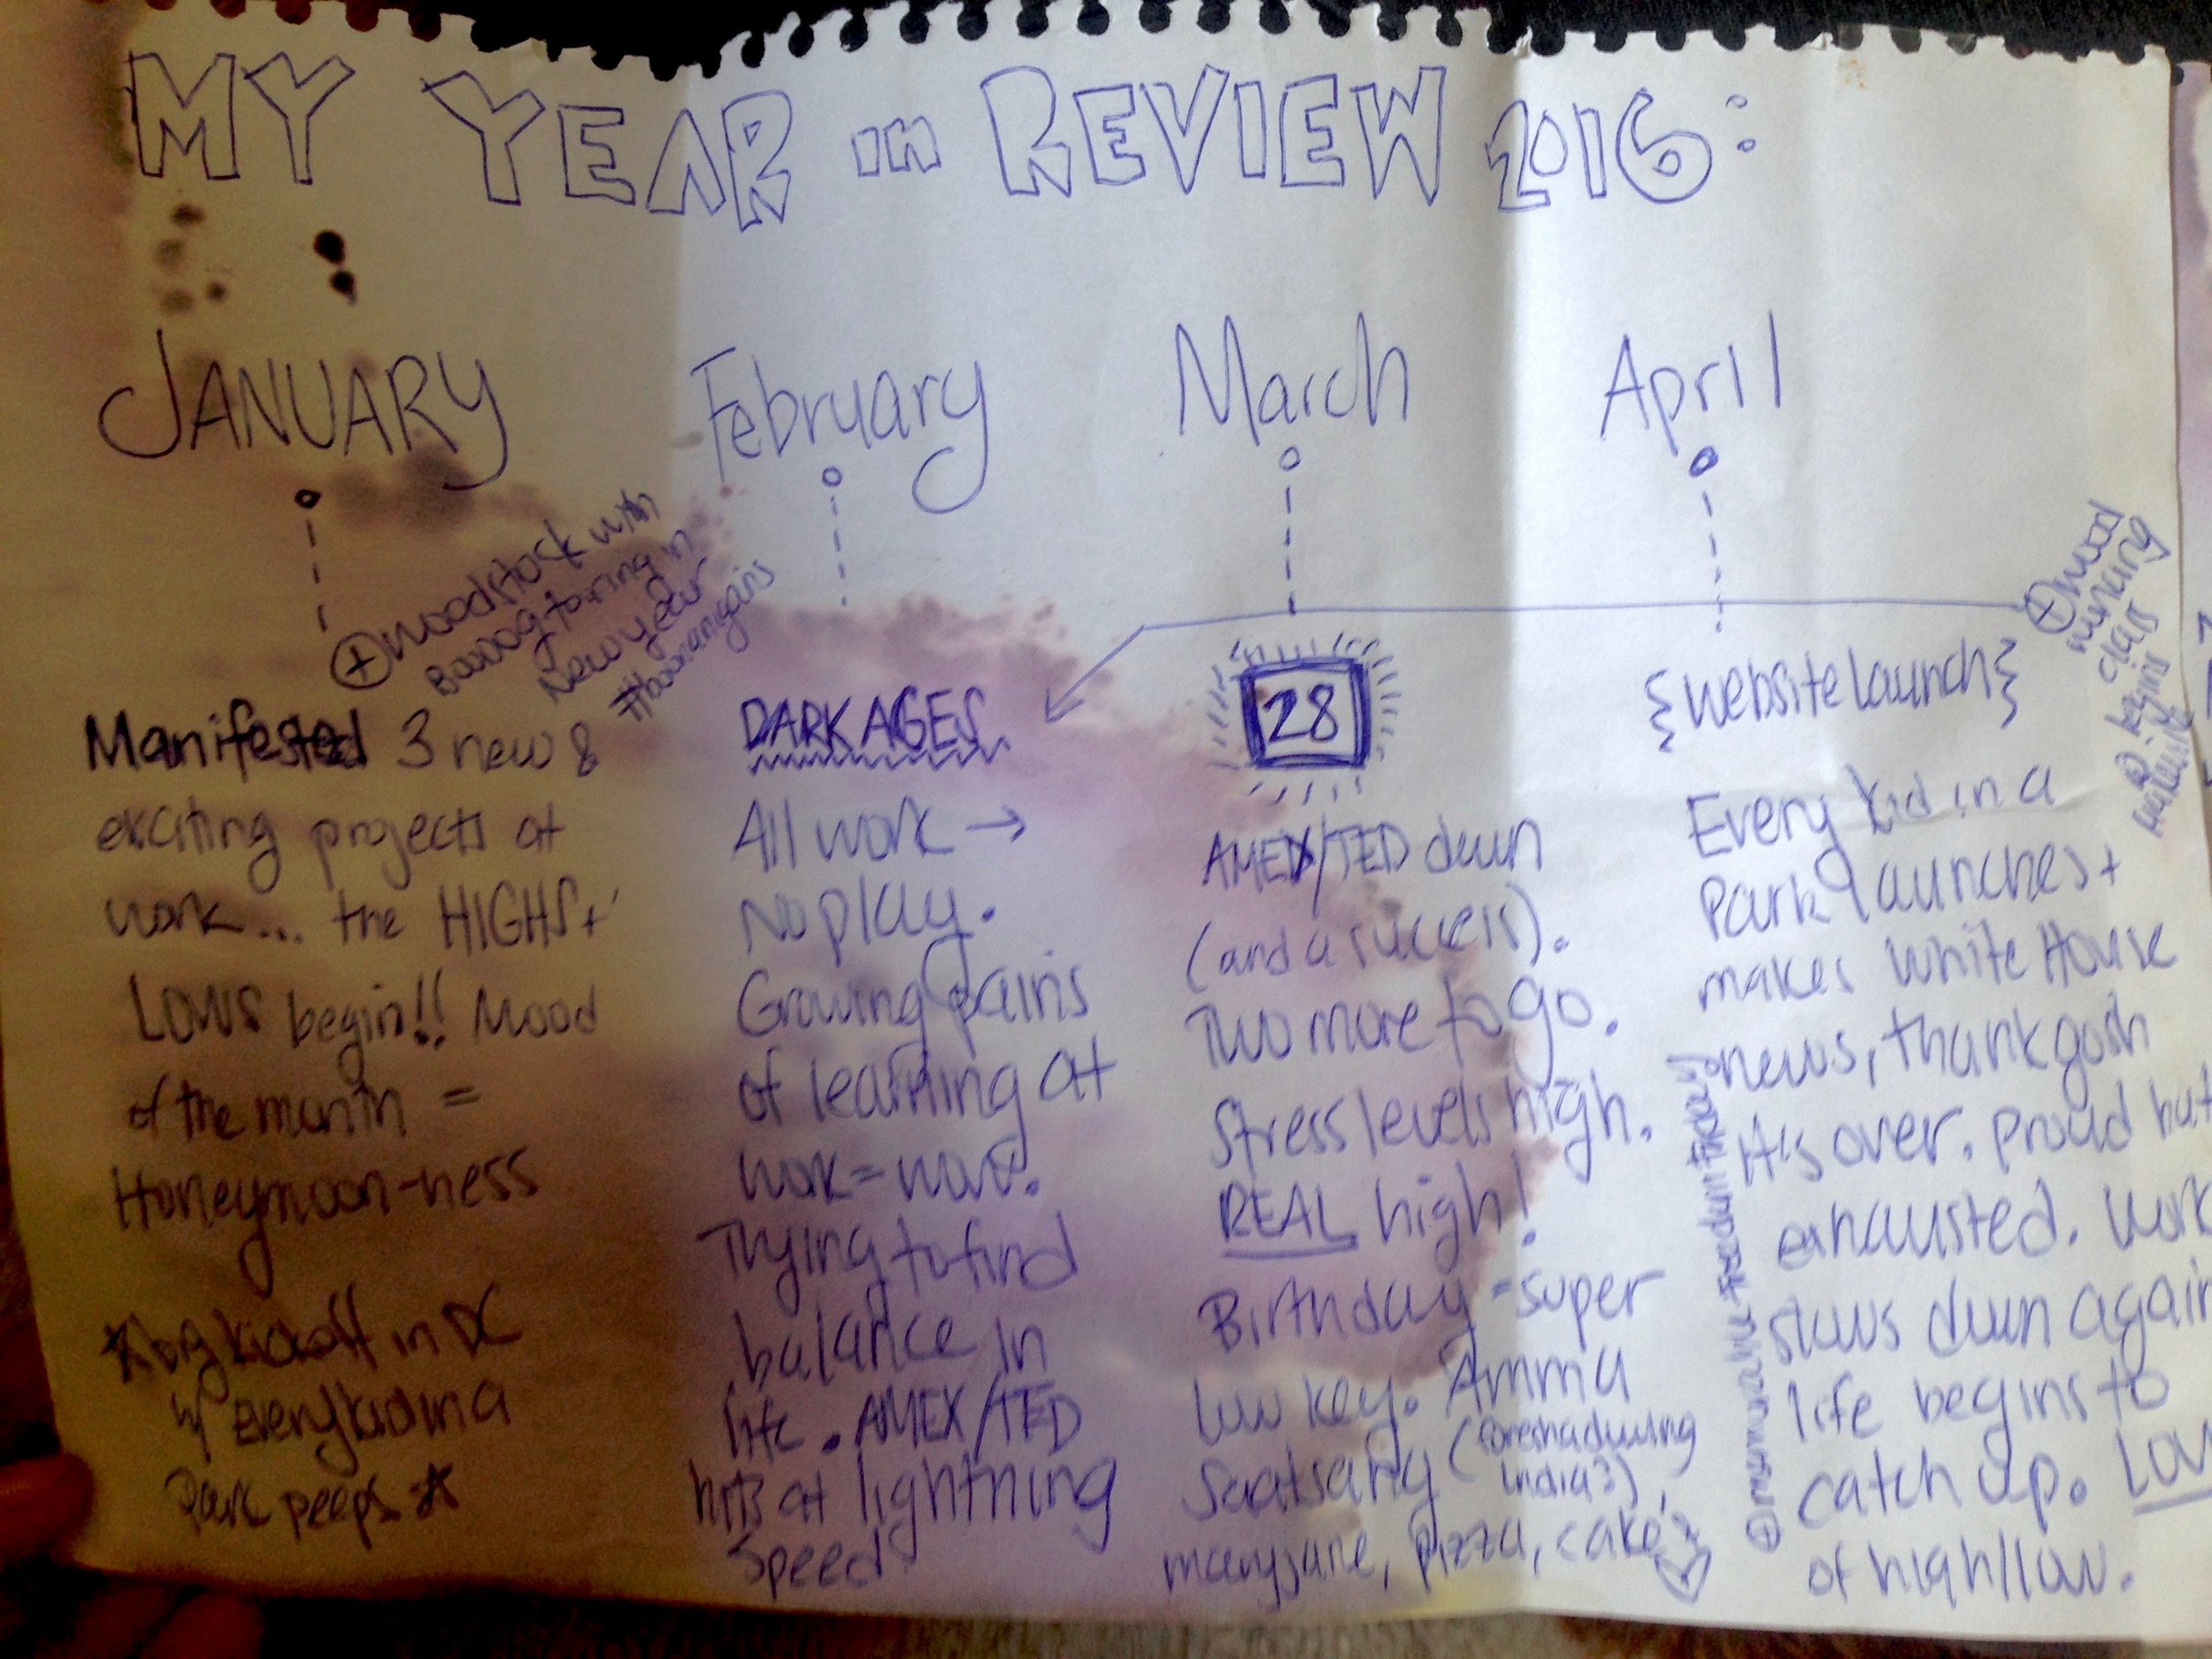 MY YEAR in REVIEW 2016:
JANUARY
⊕ Woodstock with
to ring in
New year
Manifested 3 new &
exciting projects at
work... the HIGHS +
LOWS begin!! Mood
of the month =
Honeymoon-ness
☆ big kickoff in DC
w/ Every kid in a
Park peeps ☆
February
DARK AGES
All work →
No play.
Growing pains
of learning at
work = work.
Trying to find
balance in
life. AMEX/TED
hits at lightning
speed
March
28
AMEX/TED down
(and a success).
Two more to go.
Stress levels high.
REAL high!
Birthday = super
low key. Amma
Saatsang (foreshadowing
India?),
maryjane, pizza, cake,
April
{website launch}
Every kid in a
Park launches +
makes White House
news, thank gosh
it's over. Proud but
exhausted. Work
slows down again
life begins to
catch up. LOW
of high/low.
⊕ mood
class
begins